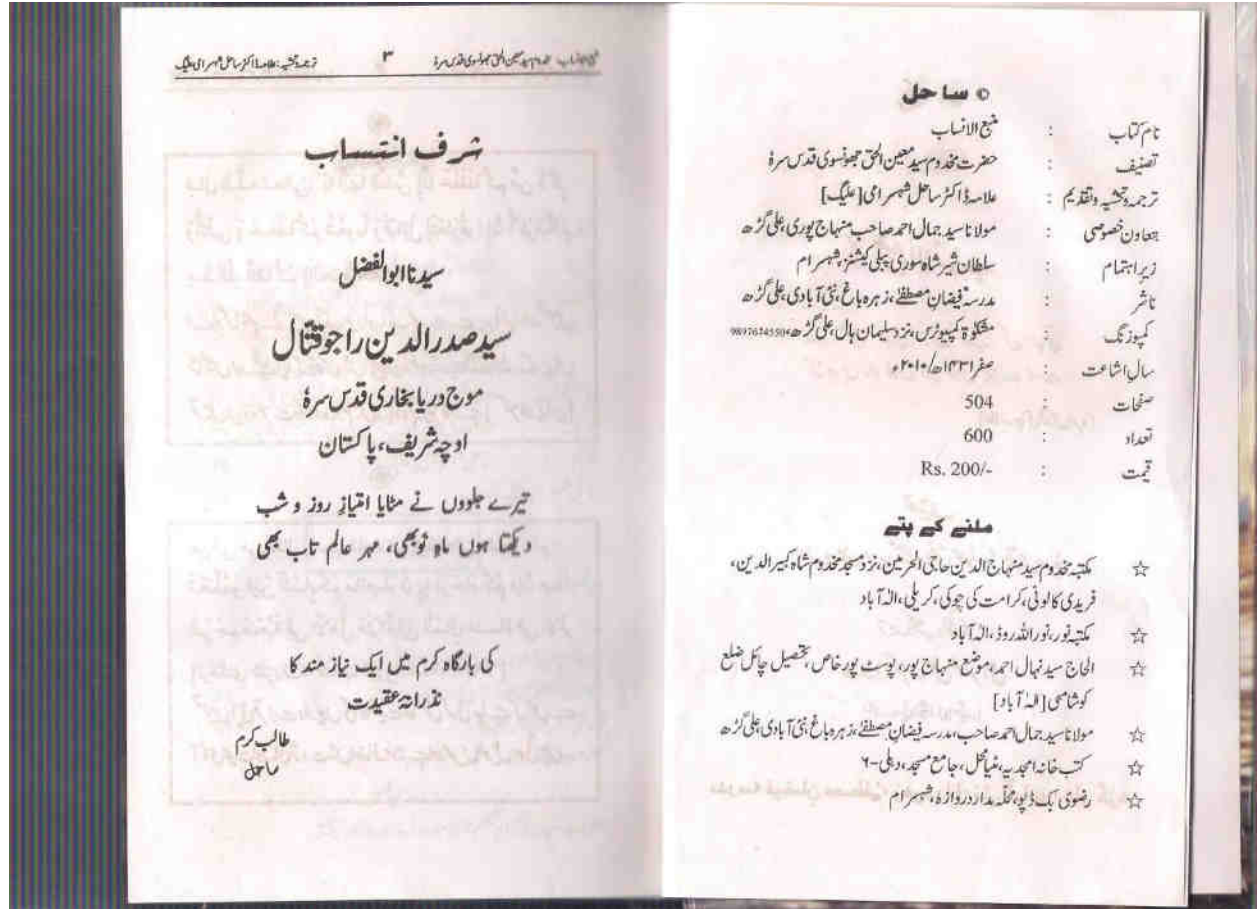 © ساحل
نام کتاب : منبع الانساب
تصنیف : حضرت مخدوم سید معین الحق جھونسوی قدس سرہٗ
ترجمہ وتحشیہ وتقدیم : علامہ ڈاکٹر ساحل شہسرامی [علیگ]
بتعاون خصوصی : مولانا سید جمال احمد صاحب منہاج پوری، علی گڑھ
زیر اہتمام : سلطان شیر شاہ سوری پبلی کیشنز، شہسرام
ناشر : مدرسہ فیضان مصطفےٰ، زہرہ باغ، نئی آبادی، علی گڑھ
کمپوزنگ : مشکوٰۃ کمپیوٹرس، نزد سلیمان ہال، علی گڑھ
سال اشاعت : صفر ۱۴۳۱ھ/۲۰۱۰ء
صفحات : 504
تعداد : 600
قیمت : Rs. 200/-
ملنے کے پتے
☆ مکتبہ مخدوم سید منہاج الدین حاجی الحرمین، نزد مسجد مخدوم شاہ کبیر الدین،
فریدی کالونی، کرامت کی چوکی، کریلی، الٰہ آباد
☆ مکتبہ نور، نور اللہ روڈ، الٰہ آباد
☆ الحاج سید نہال احمد، موضع منہاج پور، پوسٹ پور خاص، تحصیل چائل ضلع
کوشامبی [الٰہ آباد]
☆ مولانا سید جمال احمد صاحب، مدرسہ فیضان مصطفےٰ، زہرہ باغ، نئی آبادی، علی گڑھ
☆ کتب خانہ امجدیہ، مٹیا محل، جامع مسجد، دہلی-۶
☆ رضوی بک ڈپو، محلّہ مدار دروازہ، شہسرام
منبع الانساب مخدوم سید معین الحق جھونسوی قدس سرہٗ ۳ ترجمہ وتحشیہ: علامہ ڈاکٹر ساحل شہسرامی علیگ
شرف انتساب
سیدنا ابوالفضل
سید صدر الدین راجو قتّال
موج دریا بخاری قدس سرہٗ
اوچہ شریف، پاکستان
تیرے جلووں نے مٹایا امتیازِ روز و شب
دیکھتا ہوں ماہِ نوبھی، مہر عالم تاب بھی
کی بارگاہ کرم میں ایک نیاز مند کا
نذرانۂ عقیدت
طالب کرم
ساحل